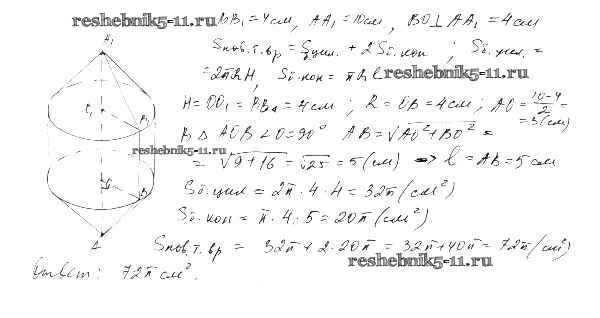 reshebnik5-11.ru BB₁=4см, AA₁=10см, BO⊥AA₁=4см
A₁
Sпов.т.вр = Sцил. + 2Sб.кон ; Sб.цил. =
= 2πRH, Sб.кон = πRl reshebnik5-11.ru
H=OO₁=BB₁=4см ; R=OB=4см ; AO=(10-4)/2=
=3(см)
O₁
B₁
В △ AOB ∠O=90° AB=√(AO²+BO²) =
reshebnik5-11.ru = √(9+16) = √25 = 5(см) ⇒ l=AB=5см
O
B
Sб.цил = 2π·4·4=32π(см²)
Sб.кон = π·4·5=20π(см²)
A
Sпов.т.вр = 32π+2·20π=32π+40π=72π(см²)
reshebnik5-11.ru
Ответ: 72π см².